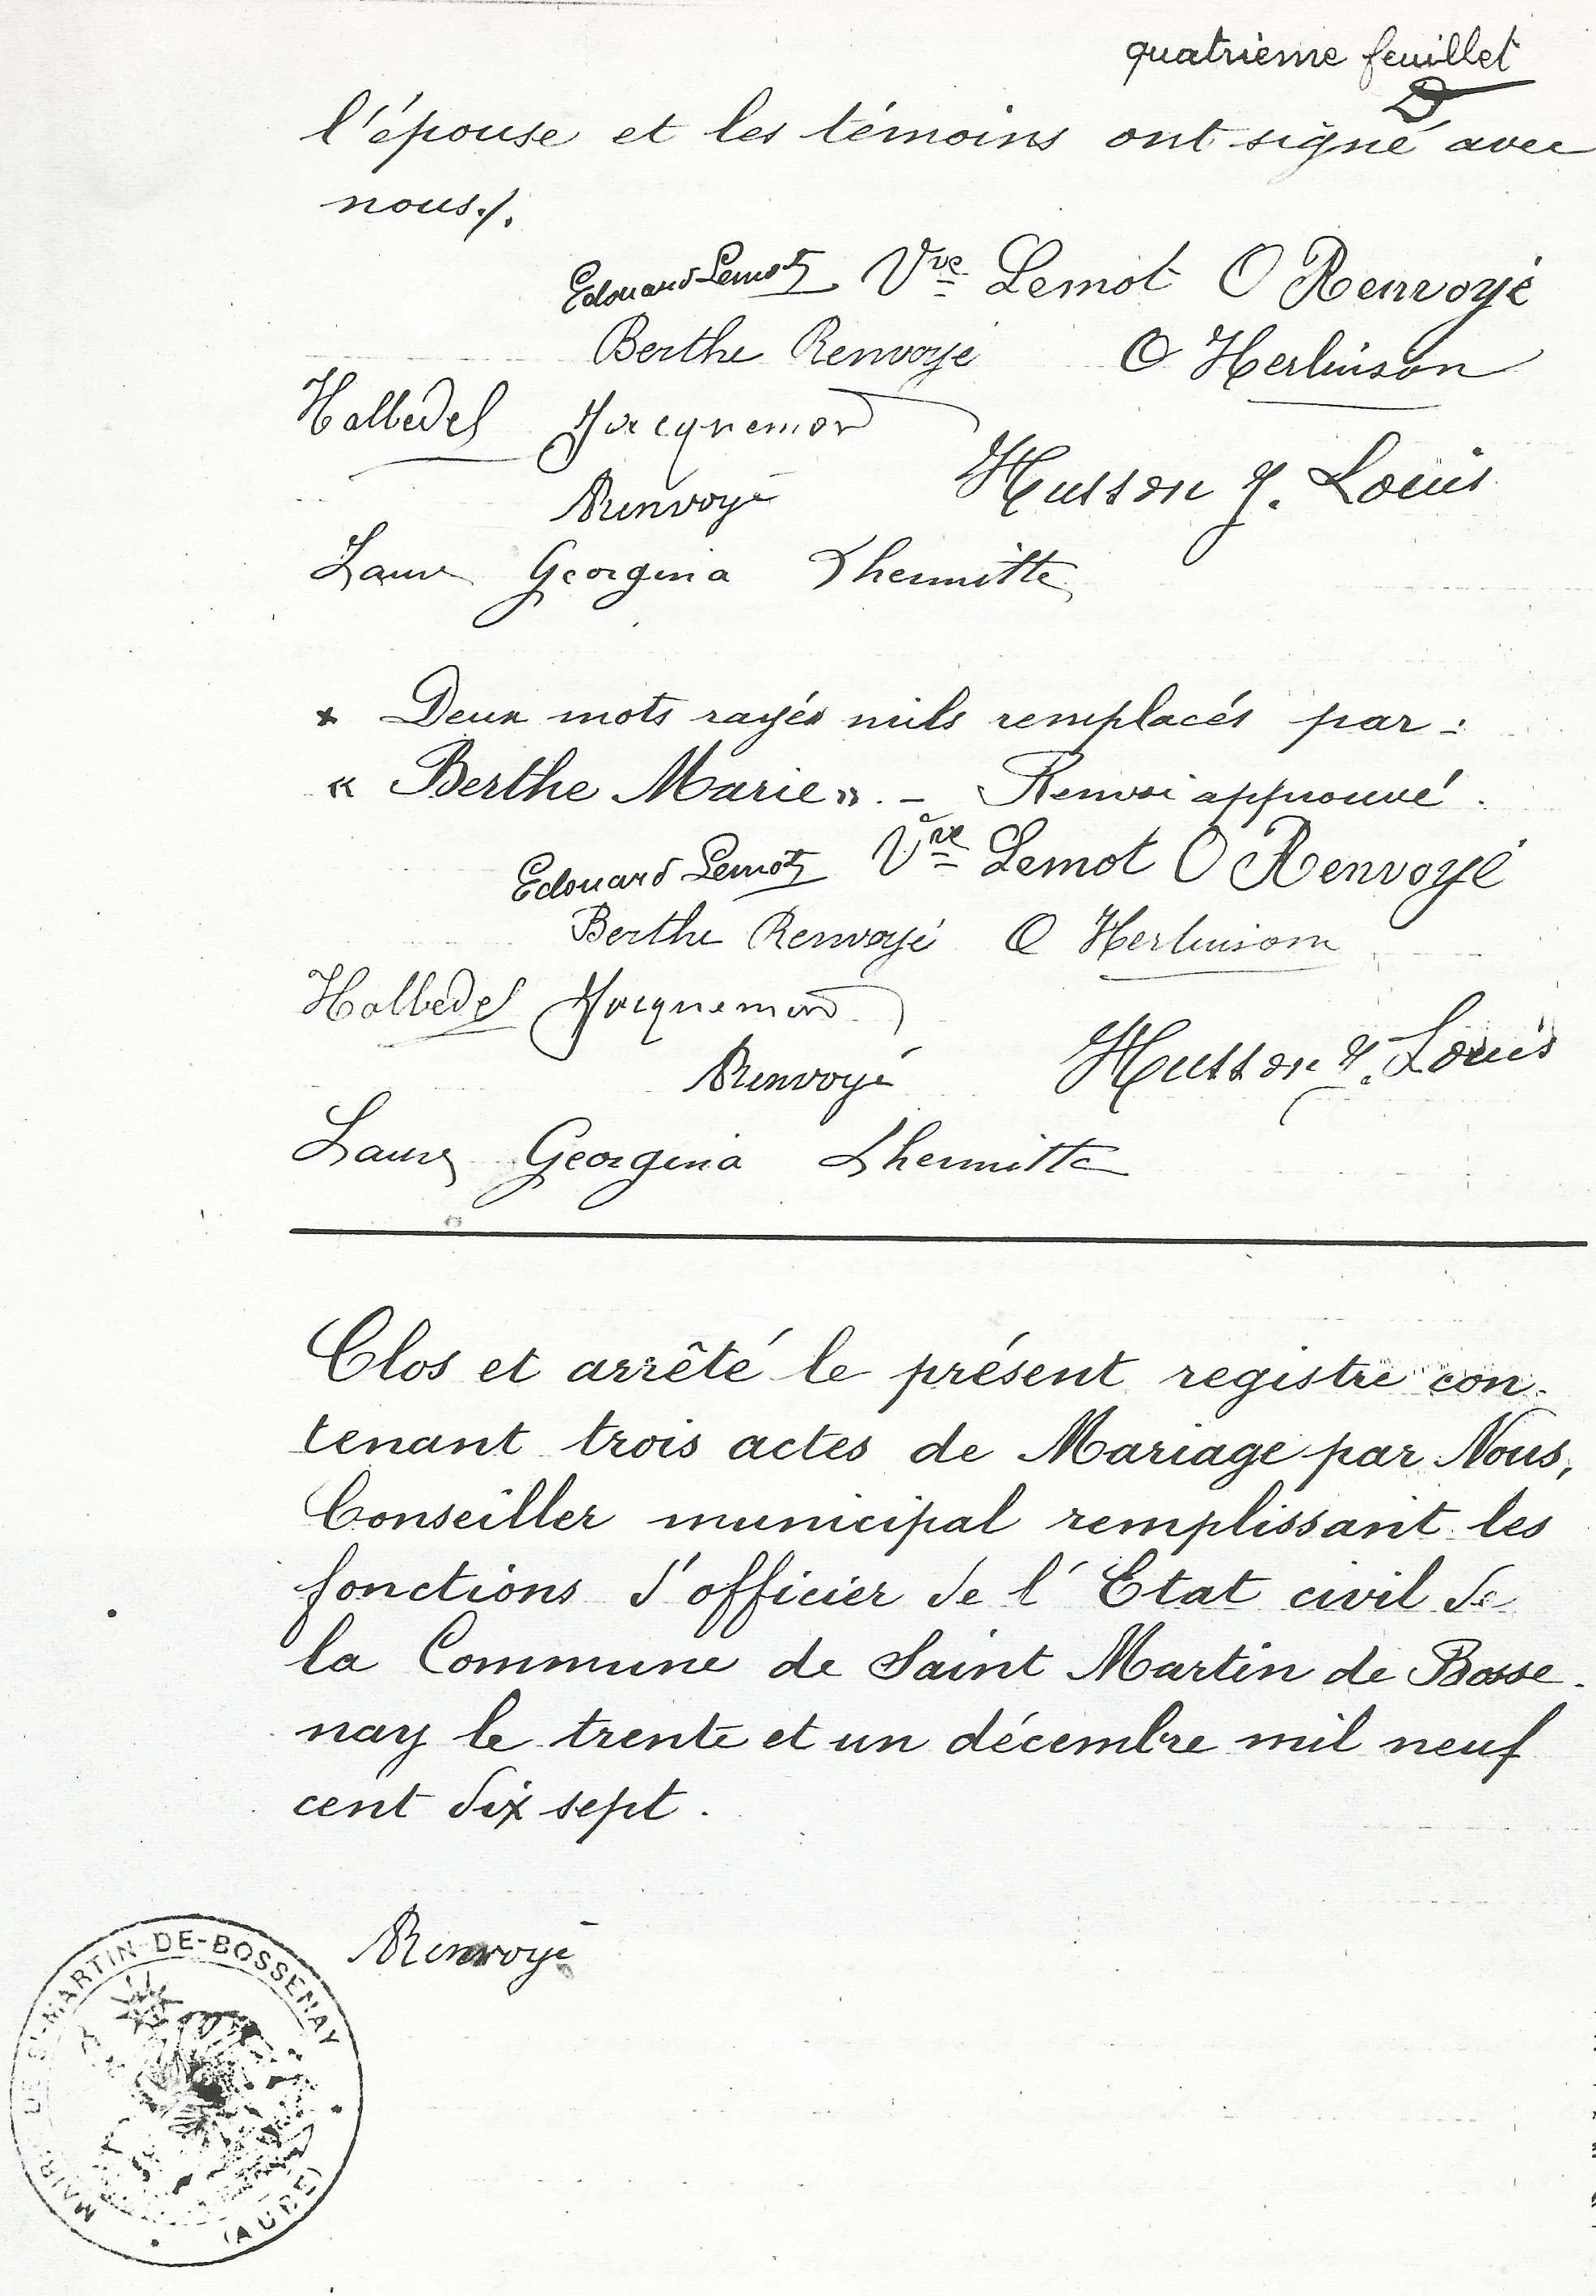 quatrième feuillet
l'épouse et les témoins ont signé avec
nous./.
Edouard Lemot Vve Lemot O Renvoyé
Berthe Renvoyé O Herluison
Halbedel Jacquemard
Renvoyé Husson J. Louis
Laure Georgina Lhermitte
* Deux mots rayés nuls remplacés par :
« Berthe Marie ». - Renvoi approuvé.
Edouard Lemot Vve Lemot O Renvoyé
Berthe Renvoyé O Herluison
Halbedel Jacquemard
Renvoyé Husson J. Louis
Laure Georgina Lhermitte
Clos et arrêté le présent registre con-
tenant trois actes de Mariage par Nous,
Conseiller municipal remplissant les
fonctions d'officier de l'Etat civil de
la Commune de Saint Martin de Bosse-
nay le trente et un décembre mil neuf
cent dix sept.
Renvoyé
MAIRIE DE St-MARTIN-DE-BOSSENAY
(AUBE)